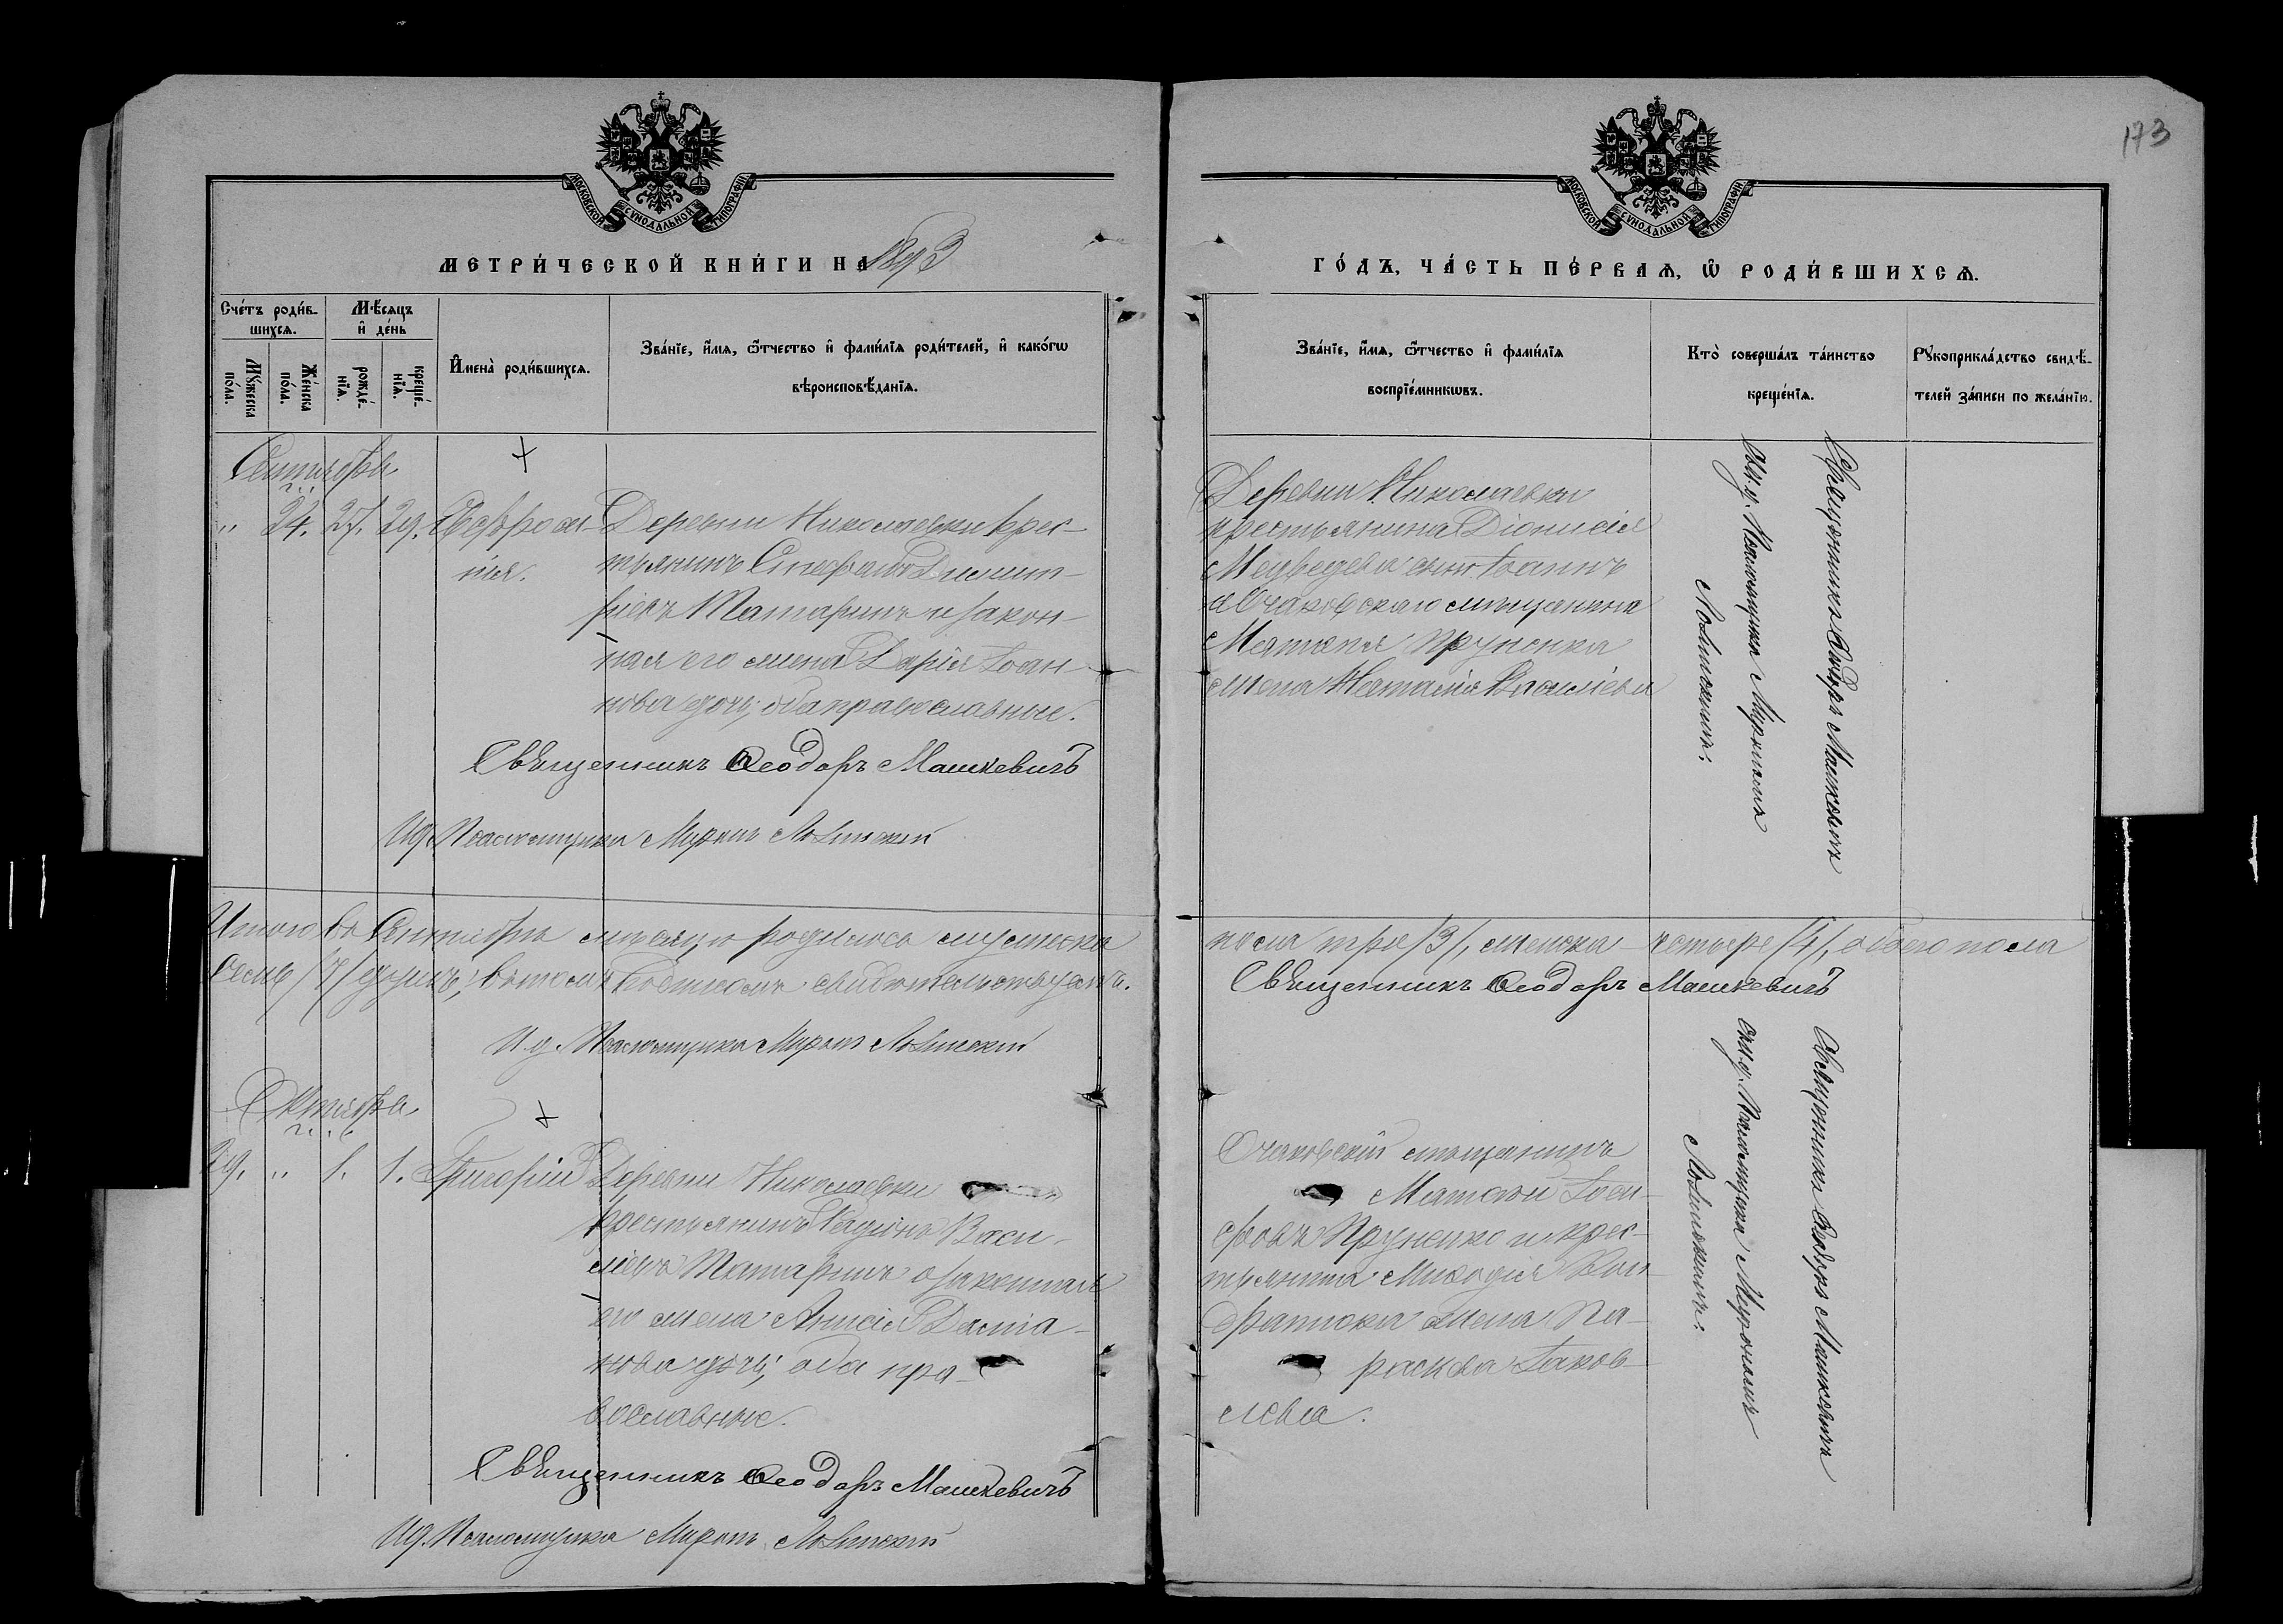 173
МОСКОВСКОЙ СѴНОДАЛЬНОЙ ТИПОГРАФІИ
МЕТРИ́ЧЕСКОЙ КНИ́ГИ НА 1893
Счéтъ роди́в-
шихсѧ.
Мꙋ́жеска
пóла.
Жéнска
пóла.
Мѣ́сѧцъ
и҆ дéнь
рождé-
нїѧ.
крещé-
нїѧ.
И҆менà роди́вшихсѧ.
Звáнїе, и҆́мѧ, ѻ҆́тчество и҆ фами́лїѧ роди́телей, и҆ какóгѡ
вѣроисповѣ́данїѧ.
Сентябрь
" 24. 27. 29. Евфроси-
нія.
Деревни Николаевки крес-
тьянинъ Стефанъ Димит-
ріевъ Татаринъ и закон-
ная его жена Дарія Іоан-
нова дочь, оба православные.
Священникъ Ѳеодоръ Машкевичъ
И.д. Псаломщика Миронъ
Итого въ Сентябрѣ мѣсяцѣ родилось мужеска
семь /7/ душъ; въ томъ подписомъ свидѣтельствуемъ.
И.д. Псаломщика Миронъ
Октябрь
29. " 1. 1. Григорій
Деревни Николаевки
крестьянинъ Васи-
ліевъ Татаринъ и законная
его жена Анисія Даміа-
нова дочь, оба пра-
вославные.
Священникъ Ѳеодоръ Машкевичъ
И.д. Псаломщика Миронъ
МОСКОВСКОЙ СѴНОДАЛЬНОЙ ТИПОГРАФІИ
ГÓДЪ, ЧÁСТЬ ПÉРВАѦ, Ѽ РОДИ́ВШИХСѦ.
Звáнїе, и҆́мѧ, ѻ҆́тчество и҆ фами́лїѧ
воспрїéмникѡвъ.
Ктò совершáлъ тáинство
крещéнїѧ.
Рꙋкоприклáдство свидѣ́-
телей зáписи по желáнїю.
Деревни Николаевки
крестьянина Діонисія
Медведева сынъ Іоаннъ
и Очаковскаго мѣщанина
Матѳея Пруненка
жена Наталія Василіева
Священникъ Ѳеодоръ Машкевичъ
съ и.д. Псаломщика Мирономъ
пола трое /3/, женска – четыре /4/, обоего пола
Священникъ Ѳеодоръ Машкевичъ
Очаковскій мѣщанинъ
Матѳей Іоси-
фовъ Пруненко и крес-
тьянина
жена Па-
раскева Іаков-
лева.
Священникъ Ѳеодоръ Машкевичъ
съ и.д. Псаломщика Мирономъ